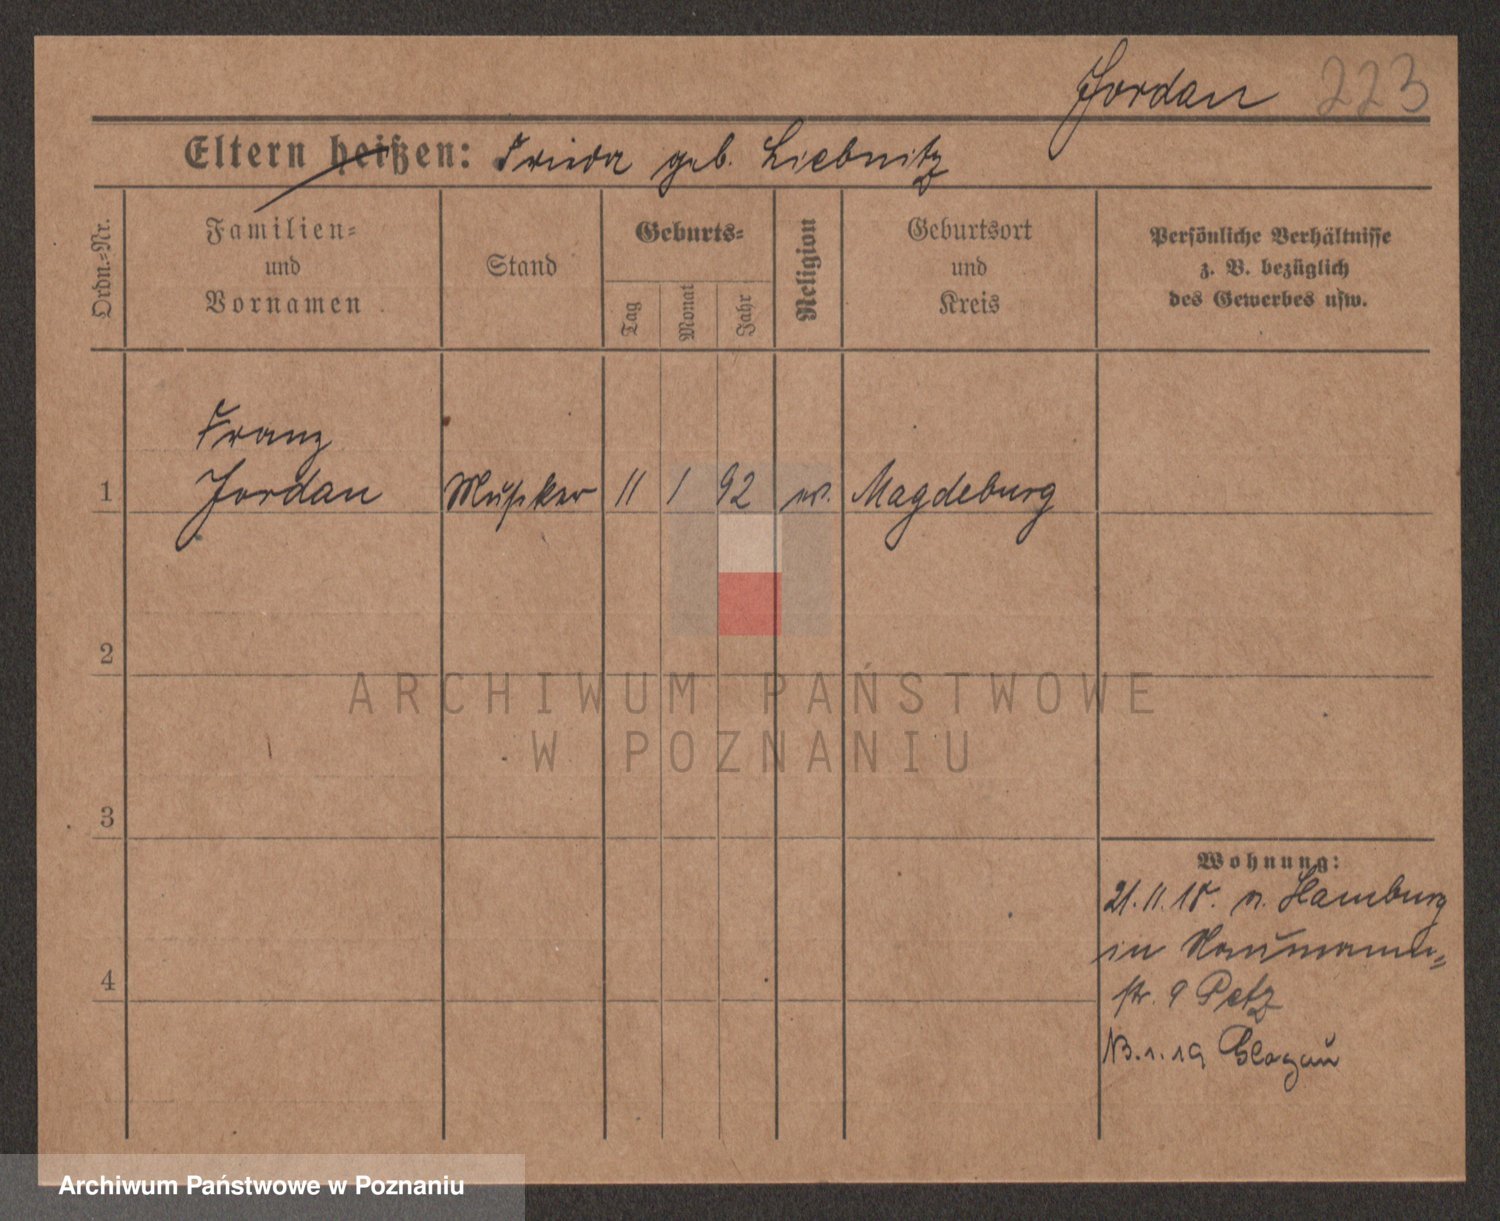 Jordan 223
Eltern heißen: Frieda geb. Liebnitz
Ordn.=Nr.
Familien=
und
Vornamen
Stand
Geburts=
Tag
Monat
Jahr
Religion
Geburtsort
und
Kreis
Persönliche Verhältnisse
z. B. bezüglich
des Gewerbes usw.
Franz
1 Jordan Musiker 11 1 92 ev. Magdeburg
2
ARCHIWUM PAŃSTWOWE
W POZNANIU
3
Wohnung:
21.11.18. v. Hamburg
in Naumann=
str. 9 Petz
4
13.1.19 Glogau
Archiwum Państwowe w Poznaniu